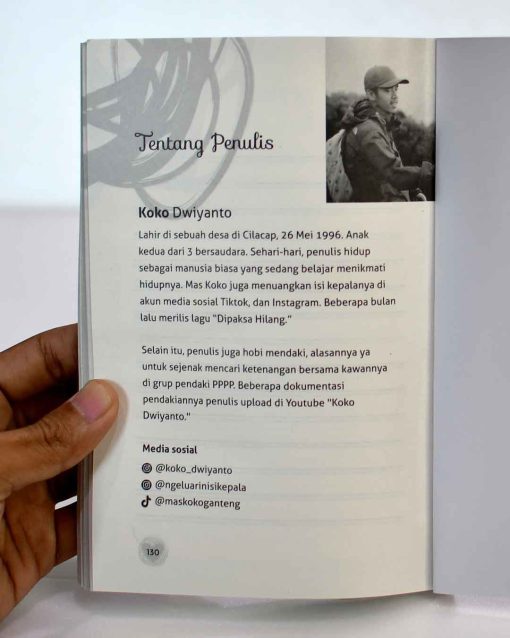 Tentang Penulis
Koko Dwiyanto
Lahir di sebuah desa di Cilacap, 26 Mei 1996. Anak
kedua dari 3 bersaudara. Sehari-hari, penulis hidup
sebagai manusia biasa yang sedang belajar menikmati
hidupnya. Mas Koko juga menuangkan isi kepalanya di
akun media sosial Tiktok, dan Instagram. Beberapa bulan
lalu merilis lagu "Dipaksa Hilang."
Selain itu, penulis juga hobi mendaki, alasannya ya
untuk sejenak mencari ketenangan bersama kawannya
di grup pendaki PPPP. Beberapa dokumentasi
pendakiannya penulis upload di Youtube "Koko
Dwiyanto."
Media sosial
@koko_dwiyanto
@ngeluarinisikepala
@maskokoganteng
130